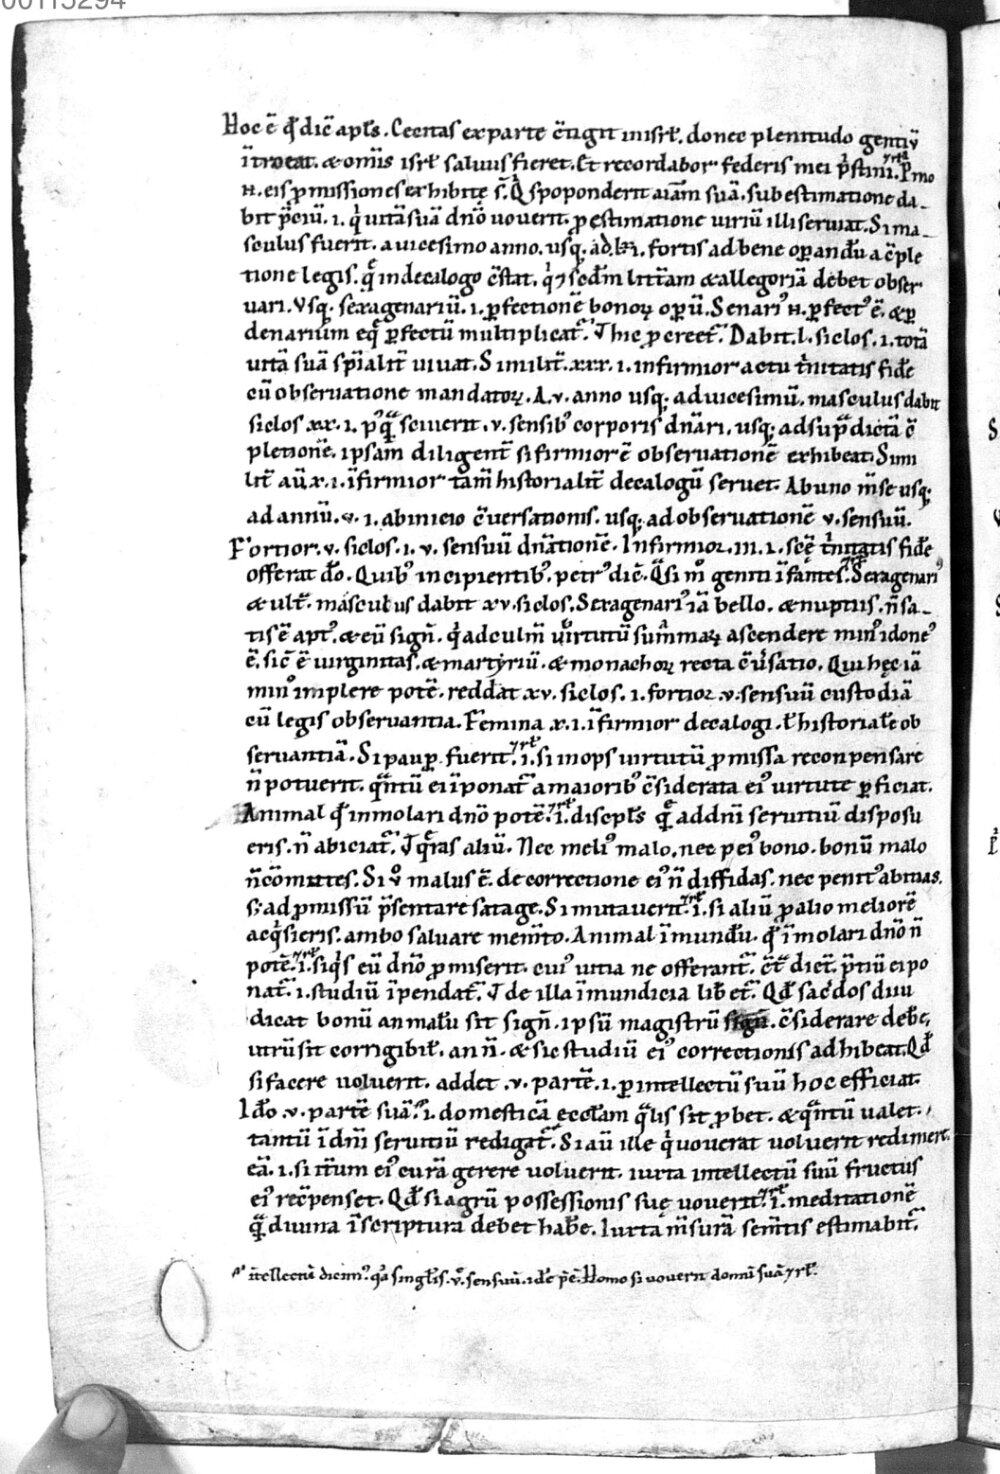 00115294
Hoc ē qd̄ dic̄ apl̄s. Cecitas ex parte c̄tigit in isrl̄. donec plenitudo gentiū
ītroeat. & om̄is isrl̄ saluus fieret. Et recordabor federis mei p̄stini. 7rl̄. P̄mo
н. eis promissiones exhibitę s̄. Q' spoponderit aīam suā. sub estimatione da-
bit p̄ciū. i. q' uitā suā dn̄o uouerit. pro estimatione uiriū illi seruiat. Si ma-
sculus fuerit. a uicesimo anno. usq; ad. lx. i. fortis ad bene oꝑandū a c̄ple
tione legis. q̄ in decalogo c̄stat. q' 7 sedm̄ litt̄am & allegoriā debet obser
uari. Vsq; sexagenariū. i. ꝑfectionē bonoꝝ oꝑū. Senari' н. ꝑfect' ē. & ꝑ
denarium eq̄ ꝑfectū multiplicat̄. 7 hic ꝑ crect̄. Dabit. l. siclos. i. totā
uitā suā sp̄ialit̄ uiuat. Similit̄. xxx. i. infirmior actu t'nitatis fide
cū obseruatione mandatoꝝ. A. v. anno usq; ad uicesimū. masculus dabit
siclos xx. i. p'q̄ sciuerit. v. sensib' corporis dn̄ari. usq; ad sup̄dictā c̄
pletionē. ipsam diligent̄ si firmior ē obseruationē exhibeat. Simi
lit̄ aū x. i. īfirmior tam̄ historialit̄ decalogū seruet. Ab uno m̄se usq;
ad annū. v. i. ab inicio c̄uersationis. usq; ad obseruationē v. sensuū.
Fortior. v. siclos. i. v. sensuū dn̄ationē. Infirmior. iii. i. scę̄ t'nitatis fide
offerat do̅. Quib' incipientib'. petr' dic̄. Q̄si m̊ geniti īfantes. 7rl̄. Sexagenari'
& ult̄. masculus dabit xv. siclos. Sexagenari' iā bello. & nuptiis. n̄ sa-
tis ē apt'. & eū sign̄. q' ad culm̄ uirtutū summaꝝ ascendere min' idone'
ē. sic̄ ē uirginitas. & martyriū. & monachoꝝ recta c̄uersatio. Qui hęc iā
min' implere potē. reddat xv. siclos. i. fortior v. sensuū custodiā
cū legis obseruantia. Femina x. i. īfirmior decalogi. ł historiale ob
seruantiā. Si pauꝑ fuerit. 7rl̄. i. si inops uirtutū promissa reconpensare
n̄ potuerit. q̄ntū ei īponat̄ a maiorib' c̄siderata ei' uirtute ꝑficiat.
Animal qd̄ inmolari dn̄o potē. 7rl̄. i. discipl̄s q̄ ad dn̄i seruitiū disposu
eris. n̄ abiciat̄. 7 q̄ras aliū. Nec meli' malo. nec pei' bono. bonū malo
n̄ cōmittes. Si v̊ malus ē. de correctione ei' n̄ diffidas. nec penit' abitias.
s; ad promissū p̄sentare satage. Si mutauerit. 7rl̄. i. si aliū pro alio meliorē
acq'sieris. ambo saluare mem̄to. Animal īmundū. qd̄ īmolari dn̄o n̄
potē. 7rl̄. i. siq's eū dn̄o promiserit. cui' uitia ne offerant̄. c̄t̄dict̄. p̄tiū ei po
nat̄. i. studiū īpendat̄. 7 de illa īmundicia lib̄et̄. Qd̄ sac̄dos diiu
dicat bonū an malū sit sign̄. ipsū magistrū sign̄. c̄siderare debe,
utrū sit corrigibil̄. an n̄. & sic studiū ei' correctionis adhibeat. Qd̄
si facere uoluerit. addet .v. partē. i. ꝑ intellectū suū hoc efficiat.
Ido̅ .v. partē suā. i. domesticā eccl̄am q̄lis sit probet. & q̄ntū ualet.
tantū ī dn̄i seruitiū redigat̄. Si aū ille q' uouerat uoluerit redimere
eā. i. si it̄um ei' curā gerere uoluerit. iuxta intellectū suū fructus
ei' rec̄penset. Qd̄ si agrū possessionis suę uouerit. 7rl̄. i. meditationē
q̄ diuina ī scriptura debet hab̄e. Iuxta m̄surā sem̄tis estimabit̄.
īntellectū dicim'. q'a singl̄is .v. sensuū. ide p̄c̄. Homo si uouerit domū suā 7rl̄.